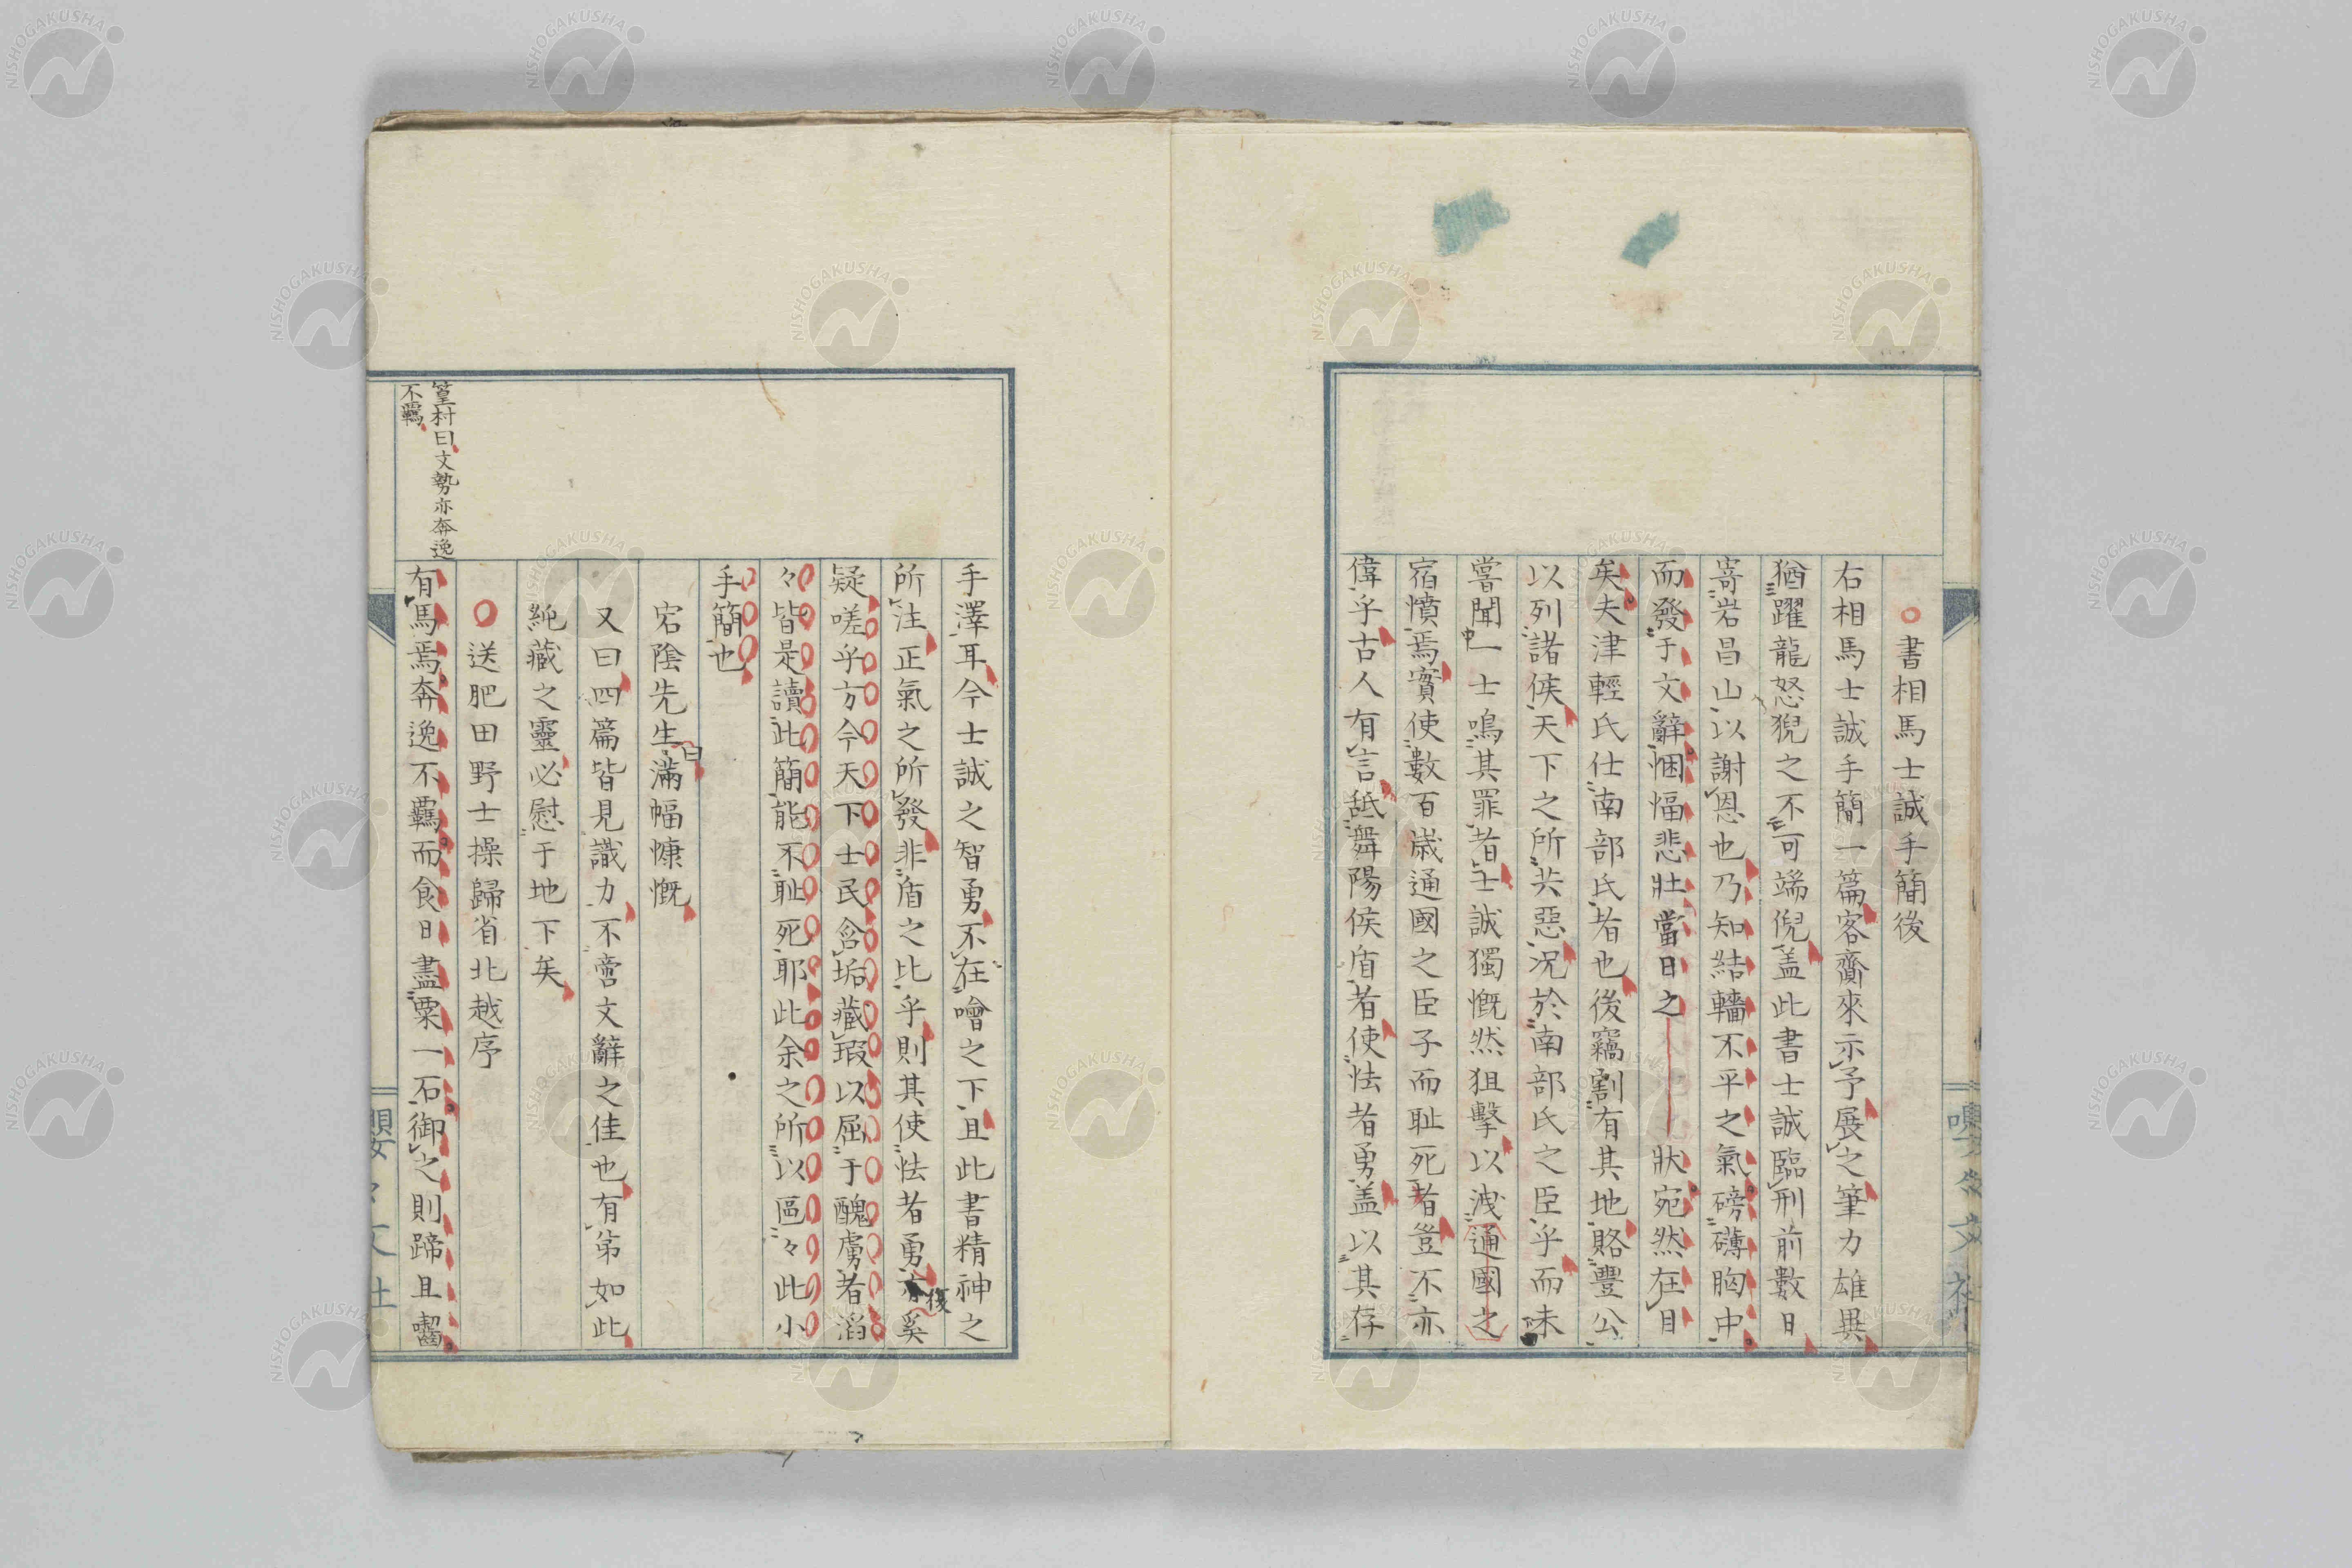 書相馬士誠手簡後
右相馬士誠手簡一篇客齎來示予展之筆力雄異
猶躍龍怒猊之不可端倪盖此書士誠臨刑前數日
寄岩昌山以謝恩也乃知結轖不平之氣磅礴胸中
而發于文辭悃愊悲壯當日之狀宛然在目
矣夫津輕氏仕南部氏者也後竊割有其地賂豐公
以列諸侯天下之所共惡況於南部氏之臣乎而未
嘗聞一士鳴其罪者士誠獨慨然狙擊以洩通國之
宿憤焉實使數百歲通國之臣子而耻死者豈不亦
偉乎古人有言舐舞陽侯盾者使怯者勇盖以其存
手澤耳今士誠之智勇不在噲之下且此書精神之
所注正氣之所發非盾之比乎則其使怯者勇亦奚
復
疑嗟乎方今天下士民含垢藏瑕以屈于醜虜者滔
々皆是讀此簡能不耻死耶此余之所以區々此小
手簡也
宕陰先生曰滿幅慷慨
又曰四篇皆見識力不啻文辭之佳也有弟如此
純藏之靈必慰于地下矣
送肥田野士操歸省北越序
篁村曰文勢亦奔逸
不羈
有馬焉奔逸不羈而食日盡粟一石御之則蹄且齧
嚶々文社
NISHOGAKUSHA